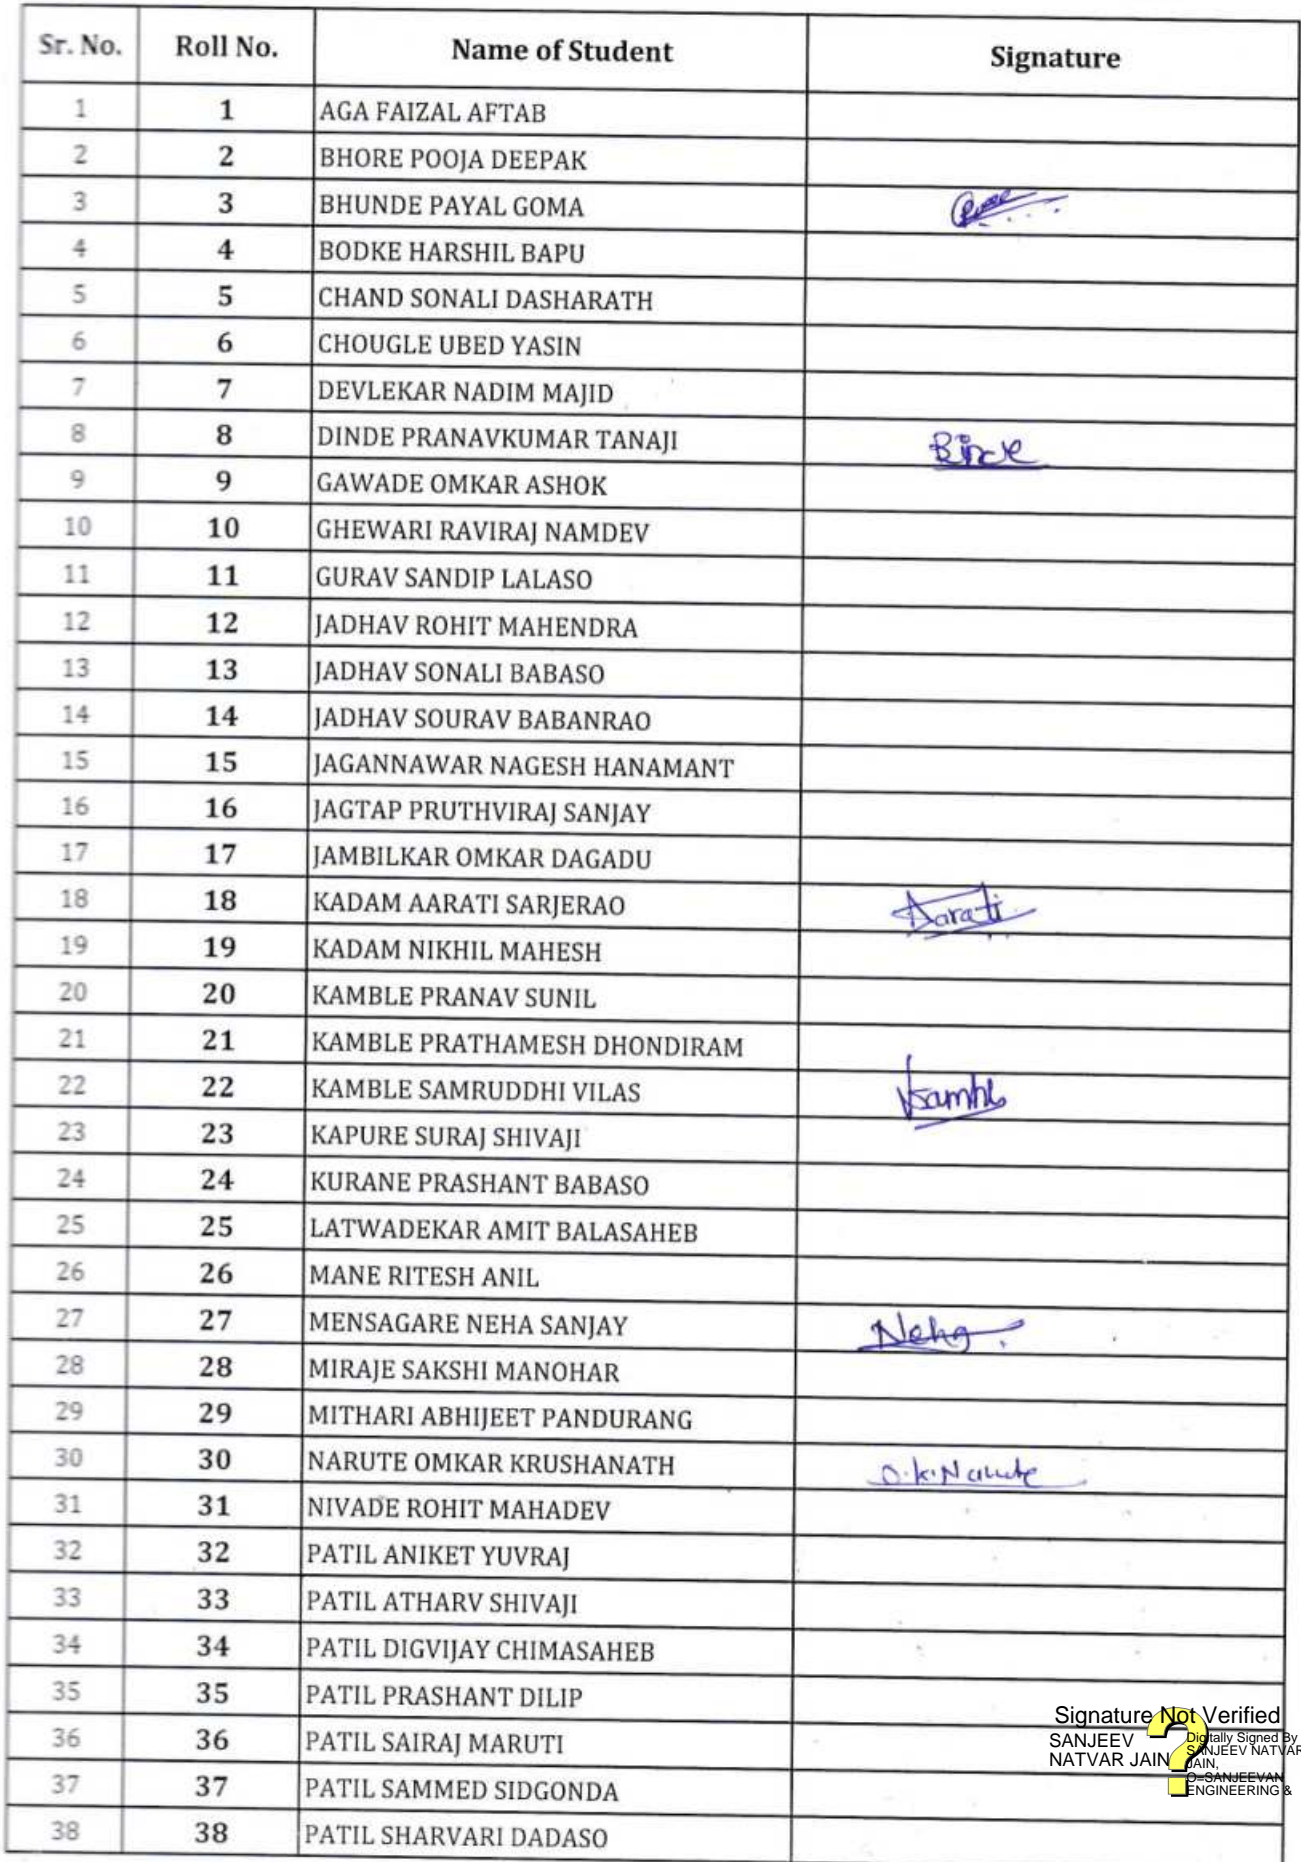 Sr. No. Roll No. Name of Student Signature
1 1 AGA FAIZAL AFTAB
2 2 BHORE POOJA DEEPAK
3 3 BHUNDE PAYAL GOMA
4 4 BODKE HARSHIL BAPU
5 5 CHAND SONALI DASHARATH
6 6 CHOUGLE UBED YASIN
7 7 DEVLEKAR NADIM MAJID
8 8 DINDE PRANAVKUMAR TANAJI
9 9 GAWADE OMKAR ASHOK
10 10 GHEWARI RAVIRAJ NAMDEV
11 11 GURAV SANDIP LALASO
12 12 JADHAV ROHIT MAHENDRA
13 13 JADHAV SONALI BABASO
14 14 JADHAV SOURAV BABANRAO
15 15 JAGANNAWAR NAGESH HANAMANT
16 16 JAGTAP PRUTHVIRAJ SANJAY
17 17 JAMBILKAR OMKAR DAGADU
18 18 KADAM AARATI SARJERAO Aarati
19 19 KADAM NIKHIL MAHESH
20 20 KAMBLE PRANAV SUNIL
21 21 KAMBLE PRATHAMESH DHONDIRAM
22 22 KAMBLE SAMRUDDHI VILAS
23 23 KAPURE SURAJ SHIVAJI
24 24 KURANE PRASHANT BABASO
25 25 LATWADEKAR AMIT BALASAHEB
26 26 MANE RITESH ANIL
27 27 MENSAGARE NEHA SANJAY Neha
28 28 MIRAJE SAKSHI MANOHAR
29 29 MITHARI ABHIJEET PANDURANG
30 30 NARUTE OMKAR KRUSHANATH O.K.Narute
31 31 NIVADE ROHIT MAHADEV
32 32 PATIL ANIKET YUVRAJ
33 33 PATIL ATHARV SHIVAJI
34 34 PATIL DIGVIJAY CHIMASAHEB
35 35 PATIL PRASHANT DILIP
36 36 PATIL SAIRAJ MARUTI
37 37 PATIL SAMMED SIDGONDA
38 38 PATIL SHARVARI DADASO
Signature Not Verified
SANJEEV
NATVAR JAIN
Digitally Signed By
SANJEEV NATVAR
JAIN,
O=SANJEEVAN
ENGINEERING &